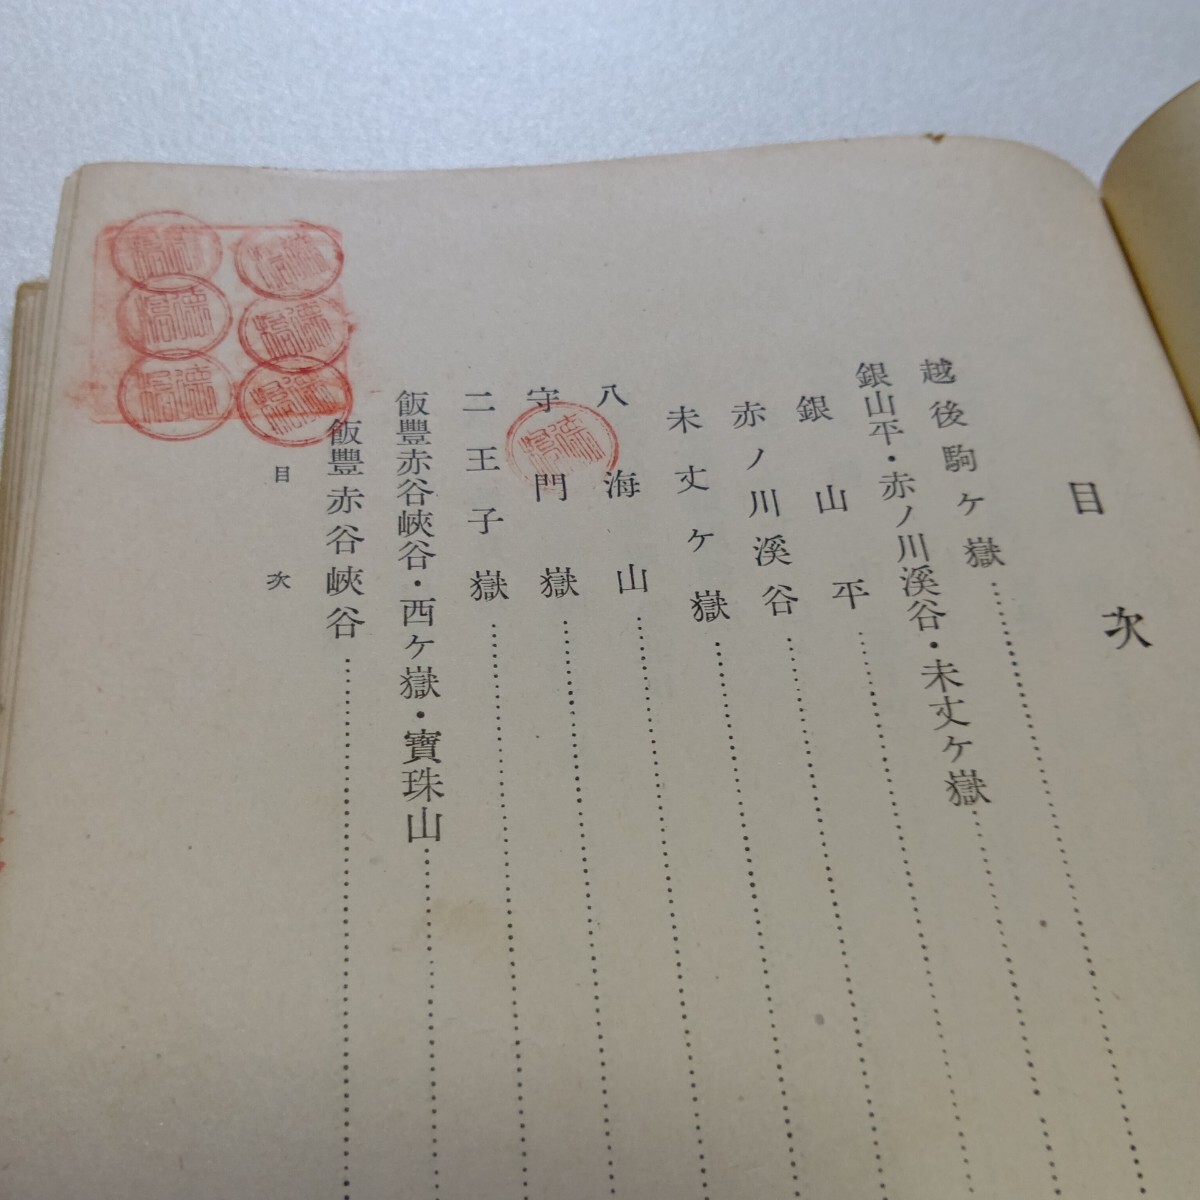 目次
越後駒ヶ嶽
銀山平・赤ノ川溪谷・未丈ヶ嶽
銀山平
赤ノ川溪谷
未丈ヶ嶽
八海山
守門嶽
二王子嶽
飯豐赤谷峽谷・西ヶ嶽・寶珠山
飯豐赤谷峽谷
目次